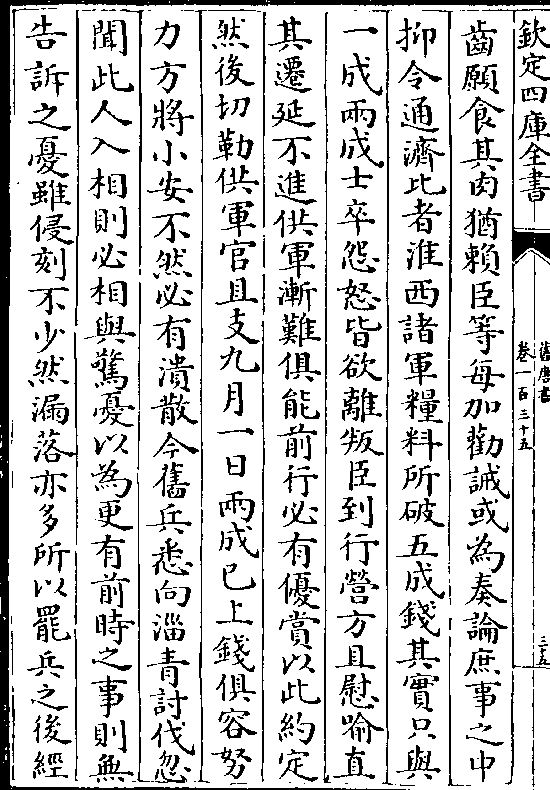 欽定四庫全書
舊唐書
卷一百三十五
三十五
齒願食其肉猶賴臣等每加勸誡或為奏論庶事之中
抑令通濟比者淮西諸軍糧料所破五成錢其實只與
一成兩成士卒怨怒皆欲離叛臣到行營方且慰喻直
其遷延不進供軍漸難俱能前行必有優賞以此約定
然後切勒供軍官且支九月一日兩成已上錢俱容努
力方將小安不然必有潰散今舊兵悉向淄青討伐忽
聞此人入相則必相與驚憂以為更有前時之事則無
告訴之憂雖侵刻不少然漏落亦多所以罷兵之後經